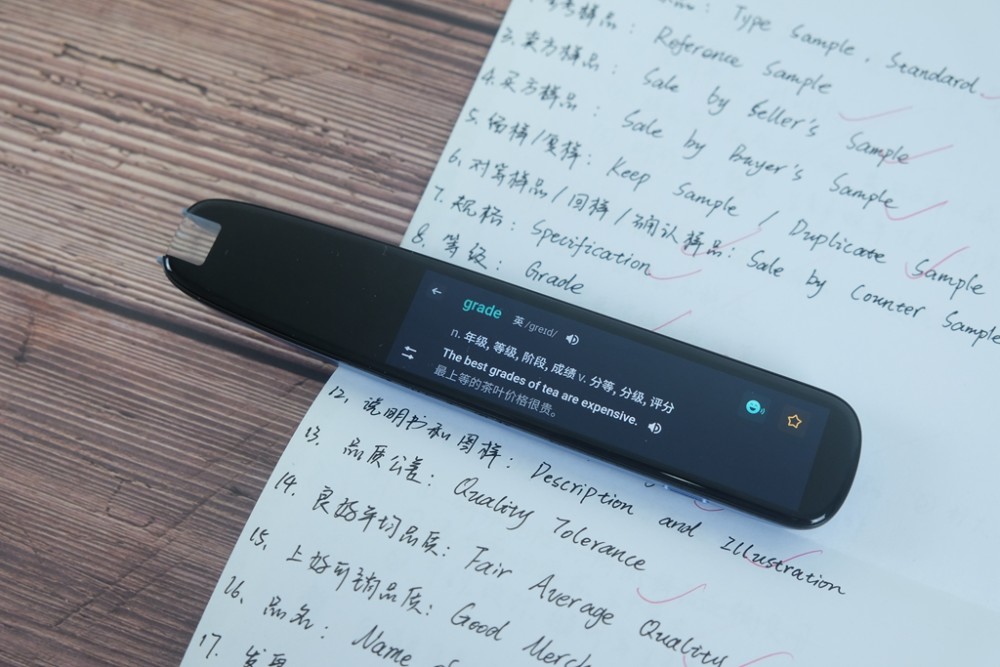 Type Sample, Standard
参考样品: Reference Sample
3. 卖方样品: Sale by Seller's Sample
4. 买方样品: Sale by Buyer's Sample
5. 留样/复样: Keep Sample / Duplicate Sample
6. 对等样品/回样/确认样品: Sale by Counter Sample
7. 规格: Specification
8. 等级: Grade
grade 英/greɪd/
n. 年级, 等级, 阶段, 成绩 v. 分等, 分级, 评分
The best grades of tea are expensive.
最上等的茶叶价格很贵。
12. 说明书和图样: Description and Illustration
13. 品质公差: Quality Tolerance
14. 良好平均品质: Fair Average Quality
15. 上好可销品质: Good
16. 品名: Name
17.